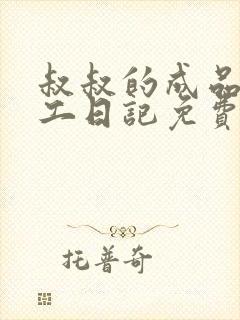 叔叔的成品
二日記免費
托普奇